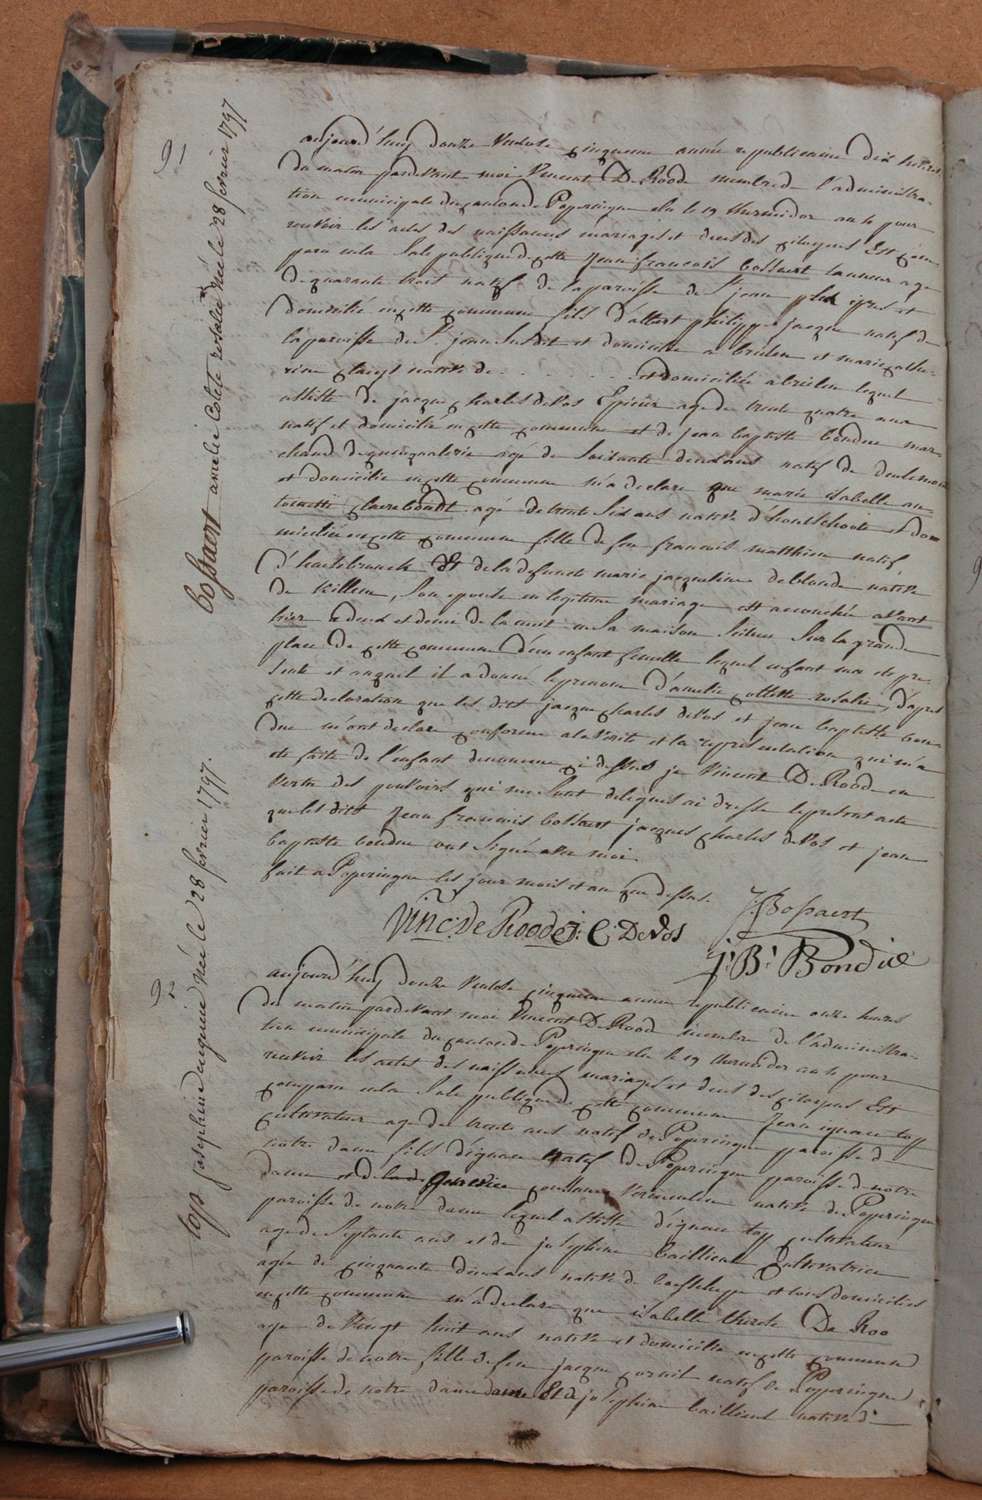 91
Bossaert amelie Colete rosalie Née le 28 fevrier 1797
aujourd'huy douze Ventose cinquieme année republicaine dix heures
du matin pardevant moi Vincent De Roode membre de l'administra-
tion municipale du canton de Poperingue elu le 19 thermidor an 4 pour
recevoir les actes des naissances mariages et deces des citoyens Est com-
paru en la Sale publique de cette Jean francois bossaert tanneur age
de quarante trois natif de la paroisse de St jean ypres et
domicilié en cette commune fils d'albert philippe jacque natif de
la paroisse de St jean Susdit et domicilié a brielen et marie cathe-
rine natif de . . . . . . . et domiciliée a brielen lequel
assisté de jacque charles deVos Epicier age de trente quatre ans
natif et domicilié en cette commune et de jean baptiste bondue mar-
chand de quinqualerie agé de Soixante deux ans natif de deulemon
et domicilie en cette commune m'a declare que marie isabelle an-
toinette Clareboudt agé de trente Six ans native d'hontschoote et dom
miciliée en cette commune fille de feu francois matthieu natif
d'hazebrouck Et de la defuncte marie jacqueline deblonde native
de Killem, Son epouse en legitime mariage est accouchée avant
hier a deux et demie de la nuit en Sa maison Scitué Sur la grande
place de cette commune d'un enfant femelle lequel enfant m'a ete pre-
senté et auquel il a donné le prenom d'amelie collette rosalie, d'apres
cette declaration que les dits jacque charles deVos et jean baptiste bon-
due m'ont declare conforme a la Vérité et la representation qui m'a
ete faite de l'enfant denomme ci dessus je Vincent De Roode en
Vertu des pouvoirs qui me Sont delegues ai dressé le present acte
que les dits Jean francois bossaert jacques charles deVos et jean
baptiste bondue ont Signé avec moi.
fait a Poperingue les jour mois et an que dessus.
J. Bossaert
Vinc. De Roode J: C: DeVos
j: B: Bondue
92
toss josephine eugenie Née le 28 fevrier 1797.
aujourd'huy douze Ventose cinquieme annee republicaine onze heures
du matin pardevant moi Vincent De Roode membre de l'administra-
tion municipale du canton de Poperingue elu le 19 thermidor an 4 pour
recevoir les actes des naissances mariages et deces des citoyens Est
comparu en la Sale publique de cette commune Jean ignace top
cultivateur age de trente ans natif de Poperingue paroisse de
notre dame fils d'ignace natif de Poperingue paroisse de notre
dame et de la de constance native de Poperingue
paroisse de notre dame lequel assisté d'ignace top cultivateur
age de Septante ans et de josephine baillieul cultivatrice
agée de cinquante deux ans native de et tous domiciliés
en cette commune m'a declare que isabelle therese De Roo
age de Vingt huit ans native et domicilié en cette commune
paroisse de notre fille de feu jacque natif de Poperingue
paroisse de notre dame dame Et de josephine baillieul native d